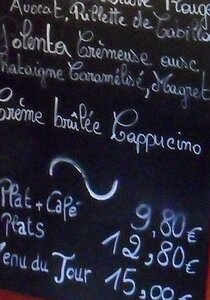 Rouge
Avocat, Rillette de Cabill
Polenta Crèmeuse avec
Kataigne Caramélisé, Magret
Crème brûlée Cappucino
Plat + Café 9,80€
Plats 12,80€
enu du Jour 15,00€